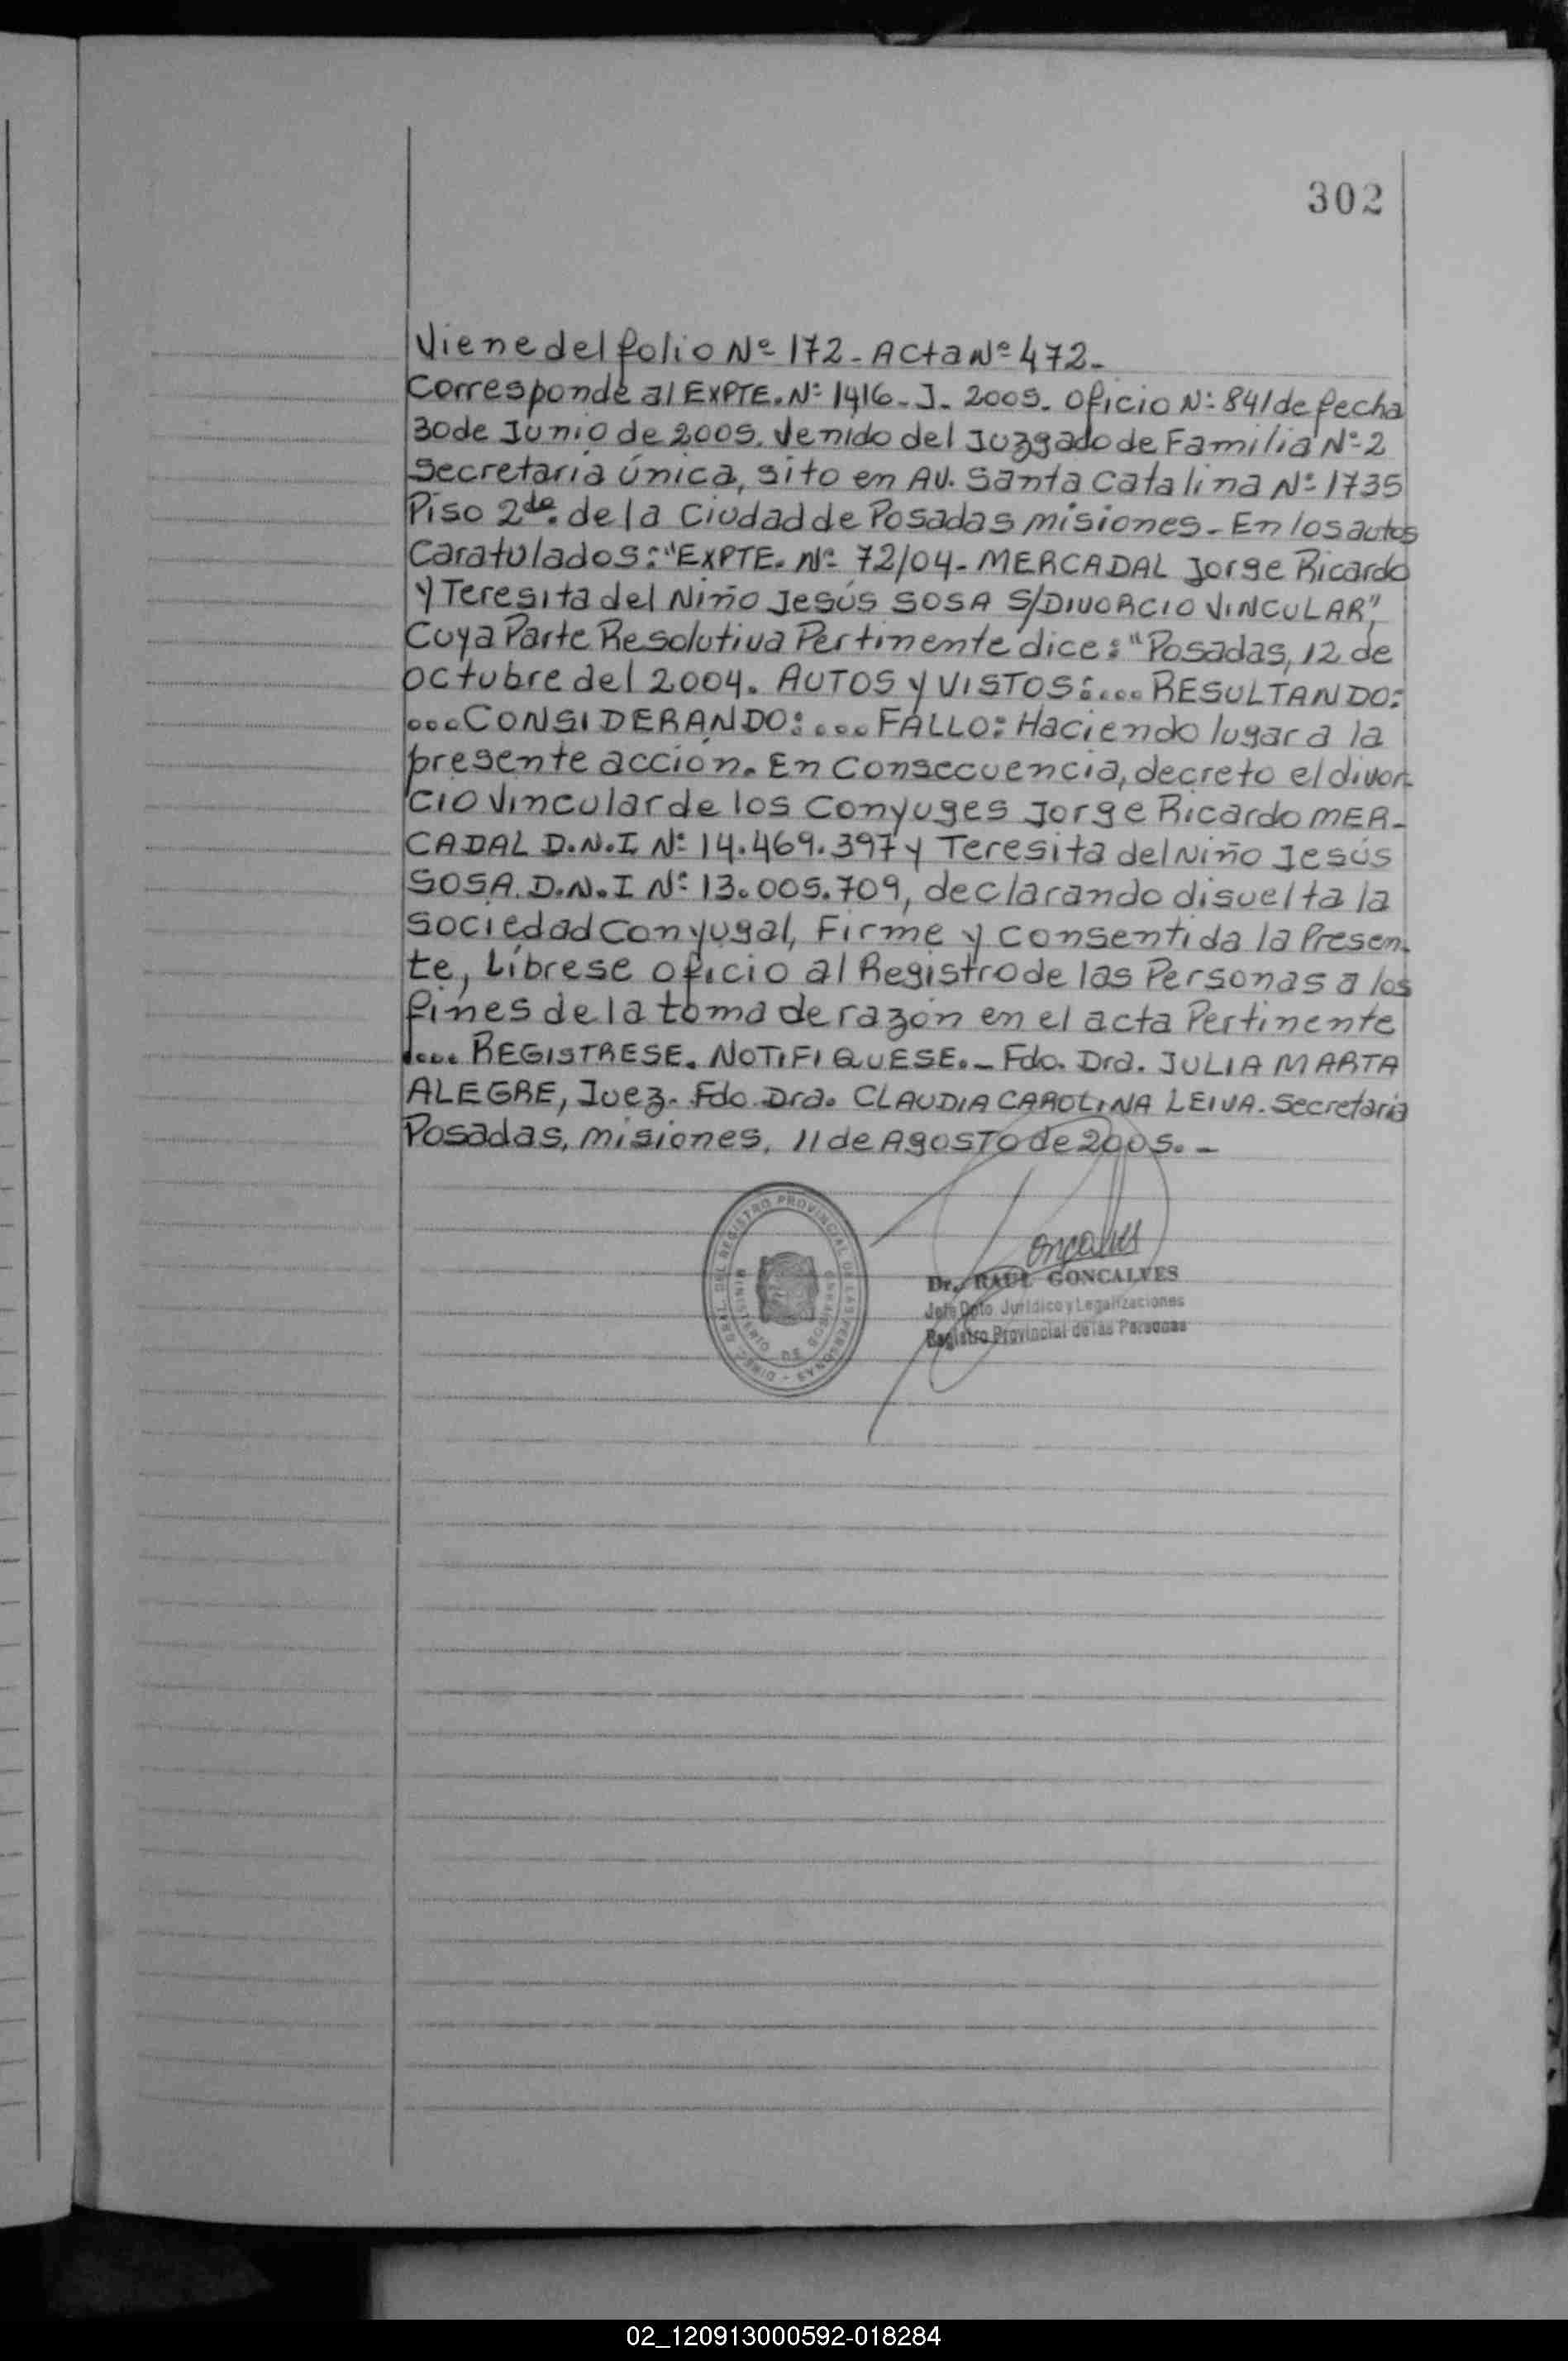 302
Viene del folio Nº 172 - Acta Nº 472 -
Corresponde al EXPTE. Nº 1416 - J - 2005. Oficio Nº 841 de fecha
30 de Junio de 2005. Venido del Juzgado de Familia Nº 2
Secretaria Única, sito en AV. Santa Catalina Nº 1735
Piso 2do. de la Ciudad de Posadas misiones - En los autos
Caratulados: "EXPTE. Nº 72/04 - MERCADAL Jorge Ricardo
y Teresita del Niño Jesús SOSA S/DIVORCIO VINCULAR",
Cuya Parte Resolutiva Pertinente dice: "Posadas, 12 de
octubre del 2004. AUTOS y VISTOS: .... RESULTANDO:
... CONSIDERANDO: .... FALLO: Haciendo lugar a la
presente acción. En Consecuencia, decreto el divor-
cio Vincular de los Conyuges Jorge Ricardo MER-
CADAL D.N.I Nº 14.469.397 y Teresita del Niño Jesús
SOSA. D.N.I Nº 13.005.709, declarando disuelta la
Sociedad Conyugal, Firme y consentida la Presen-
te, Líbrese oficio al Registro de las Personas a los
fines de la toma de razón en el acta Pertinente
.... REGISTRESE. NOTIFIQUESE. - Fdo. Dra. JULIA MARTA
ALEGRE, Juez - Fdo Dra. CLAUDIA CAROLINA LEIVA - Secretaria
Posadas, misiones, 11 de Agosto de 2005. -
DIREC. GRAL. DEL REGISTRO PROVINCIAL DE LAS PERSONAS
MINISTERIO DE GOBIERNO
Dr. RAUL GONCALVES
Jefe Dpto Jurídico y Legalizaciones
Registro Provincial de las Personas
02_120913000592-018284